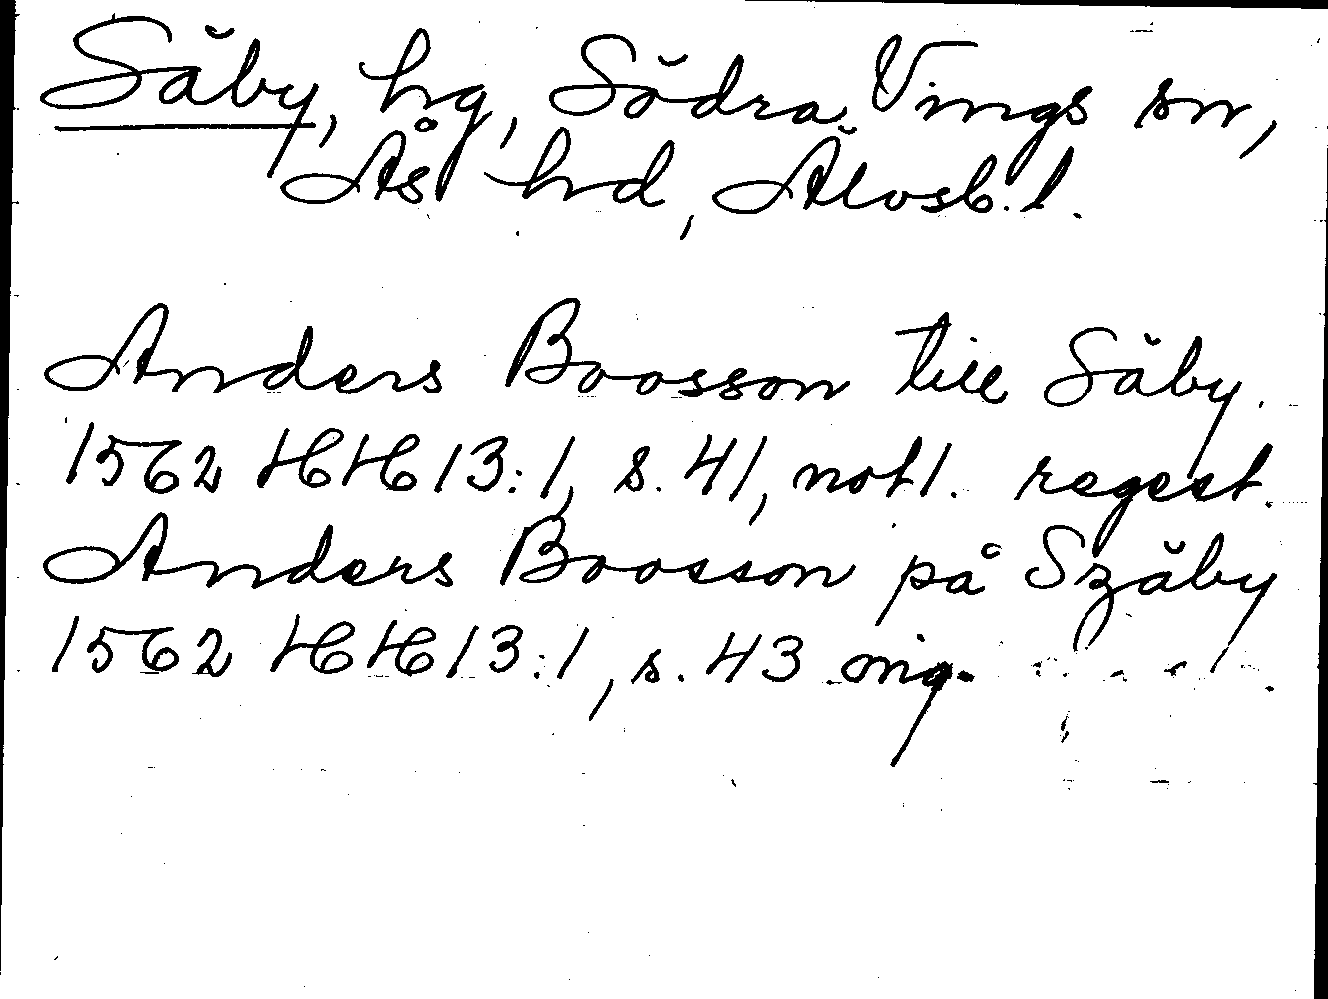 Säby, hg, Södra Vings sn,
Ås hd, Älvsb. l.
Anders Boosson till Säby.
1562 HH 13:1, s. 41, not 1. regest.
Anders Boosson på Szäby
1562 HH 13:1, s. 43 orig.